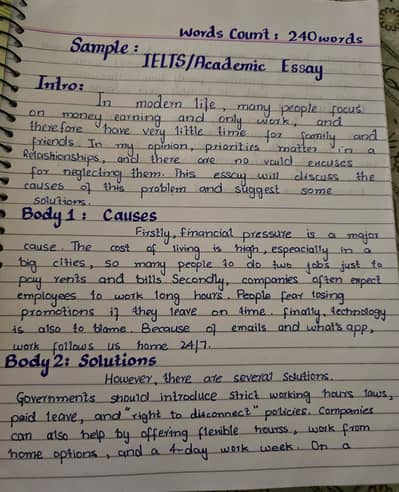 Words Count: 240words
Sample:
IELTS/Academic Essay
Intro:
In modern life, many people focus
on money earning and only work, and
therefore have very little time for family and
friends. In my opinion, priorities matter in a
Relashionships, and there are no vauld encuses
for neglecting them. This essay will discuss the
causes of this problem and suggest some
solutions.
Body 1: Causes
Firstly, financial pressure is a major
cause. The cost of living is high, espeacially in a
big cities, so many people to do two jobs just to
pay rents and bills Secondly, companies often expect
employees to work long hours. People fear losing
promotions if they leave on time. finally, technology
is also to blame. Because of emails and what's app,
work follows us home 24/7.
Body 2: Solutions
However, there are several Solutions.
Governments should introduce strict working hours laws,
paid leave, and "right to disconnect" policies. Companies
can also help by offering flenible hourss, work from
home options, and a 4-day work week. On a